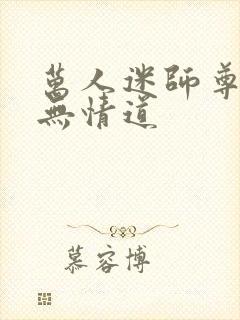 萬人迷師尊
無情道
慕容博